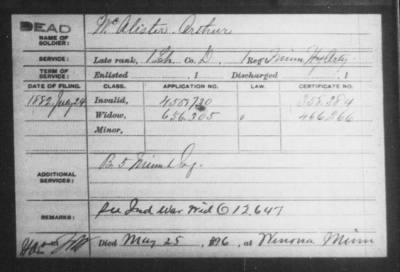 DEAD
NAME OF SOLDIER: McAlister, Arthur
SERVICE: Late rank, Co. D, 1 Reg't Minn Hy Arty
TERM OF SERVICE: Enlisted , 1 Discharged , 1
DATE OF FILING. CLASS. APPLICATION NO. LAW. CERTIFICATE NO.
1882, July 29 Invalid, 455720 358.284
Widow, 636.305 466266
Minor,
ADDITIONAL SERVICES: B 5 Minn Inf.
REMARKS: See Ind War Wid O 12647
Died May 25, 1896, at Winona Minn